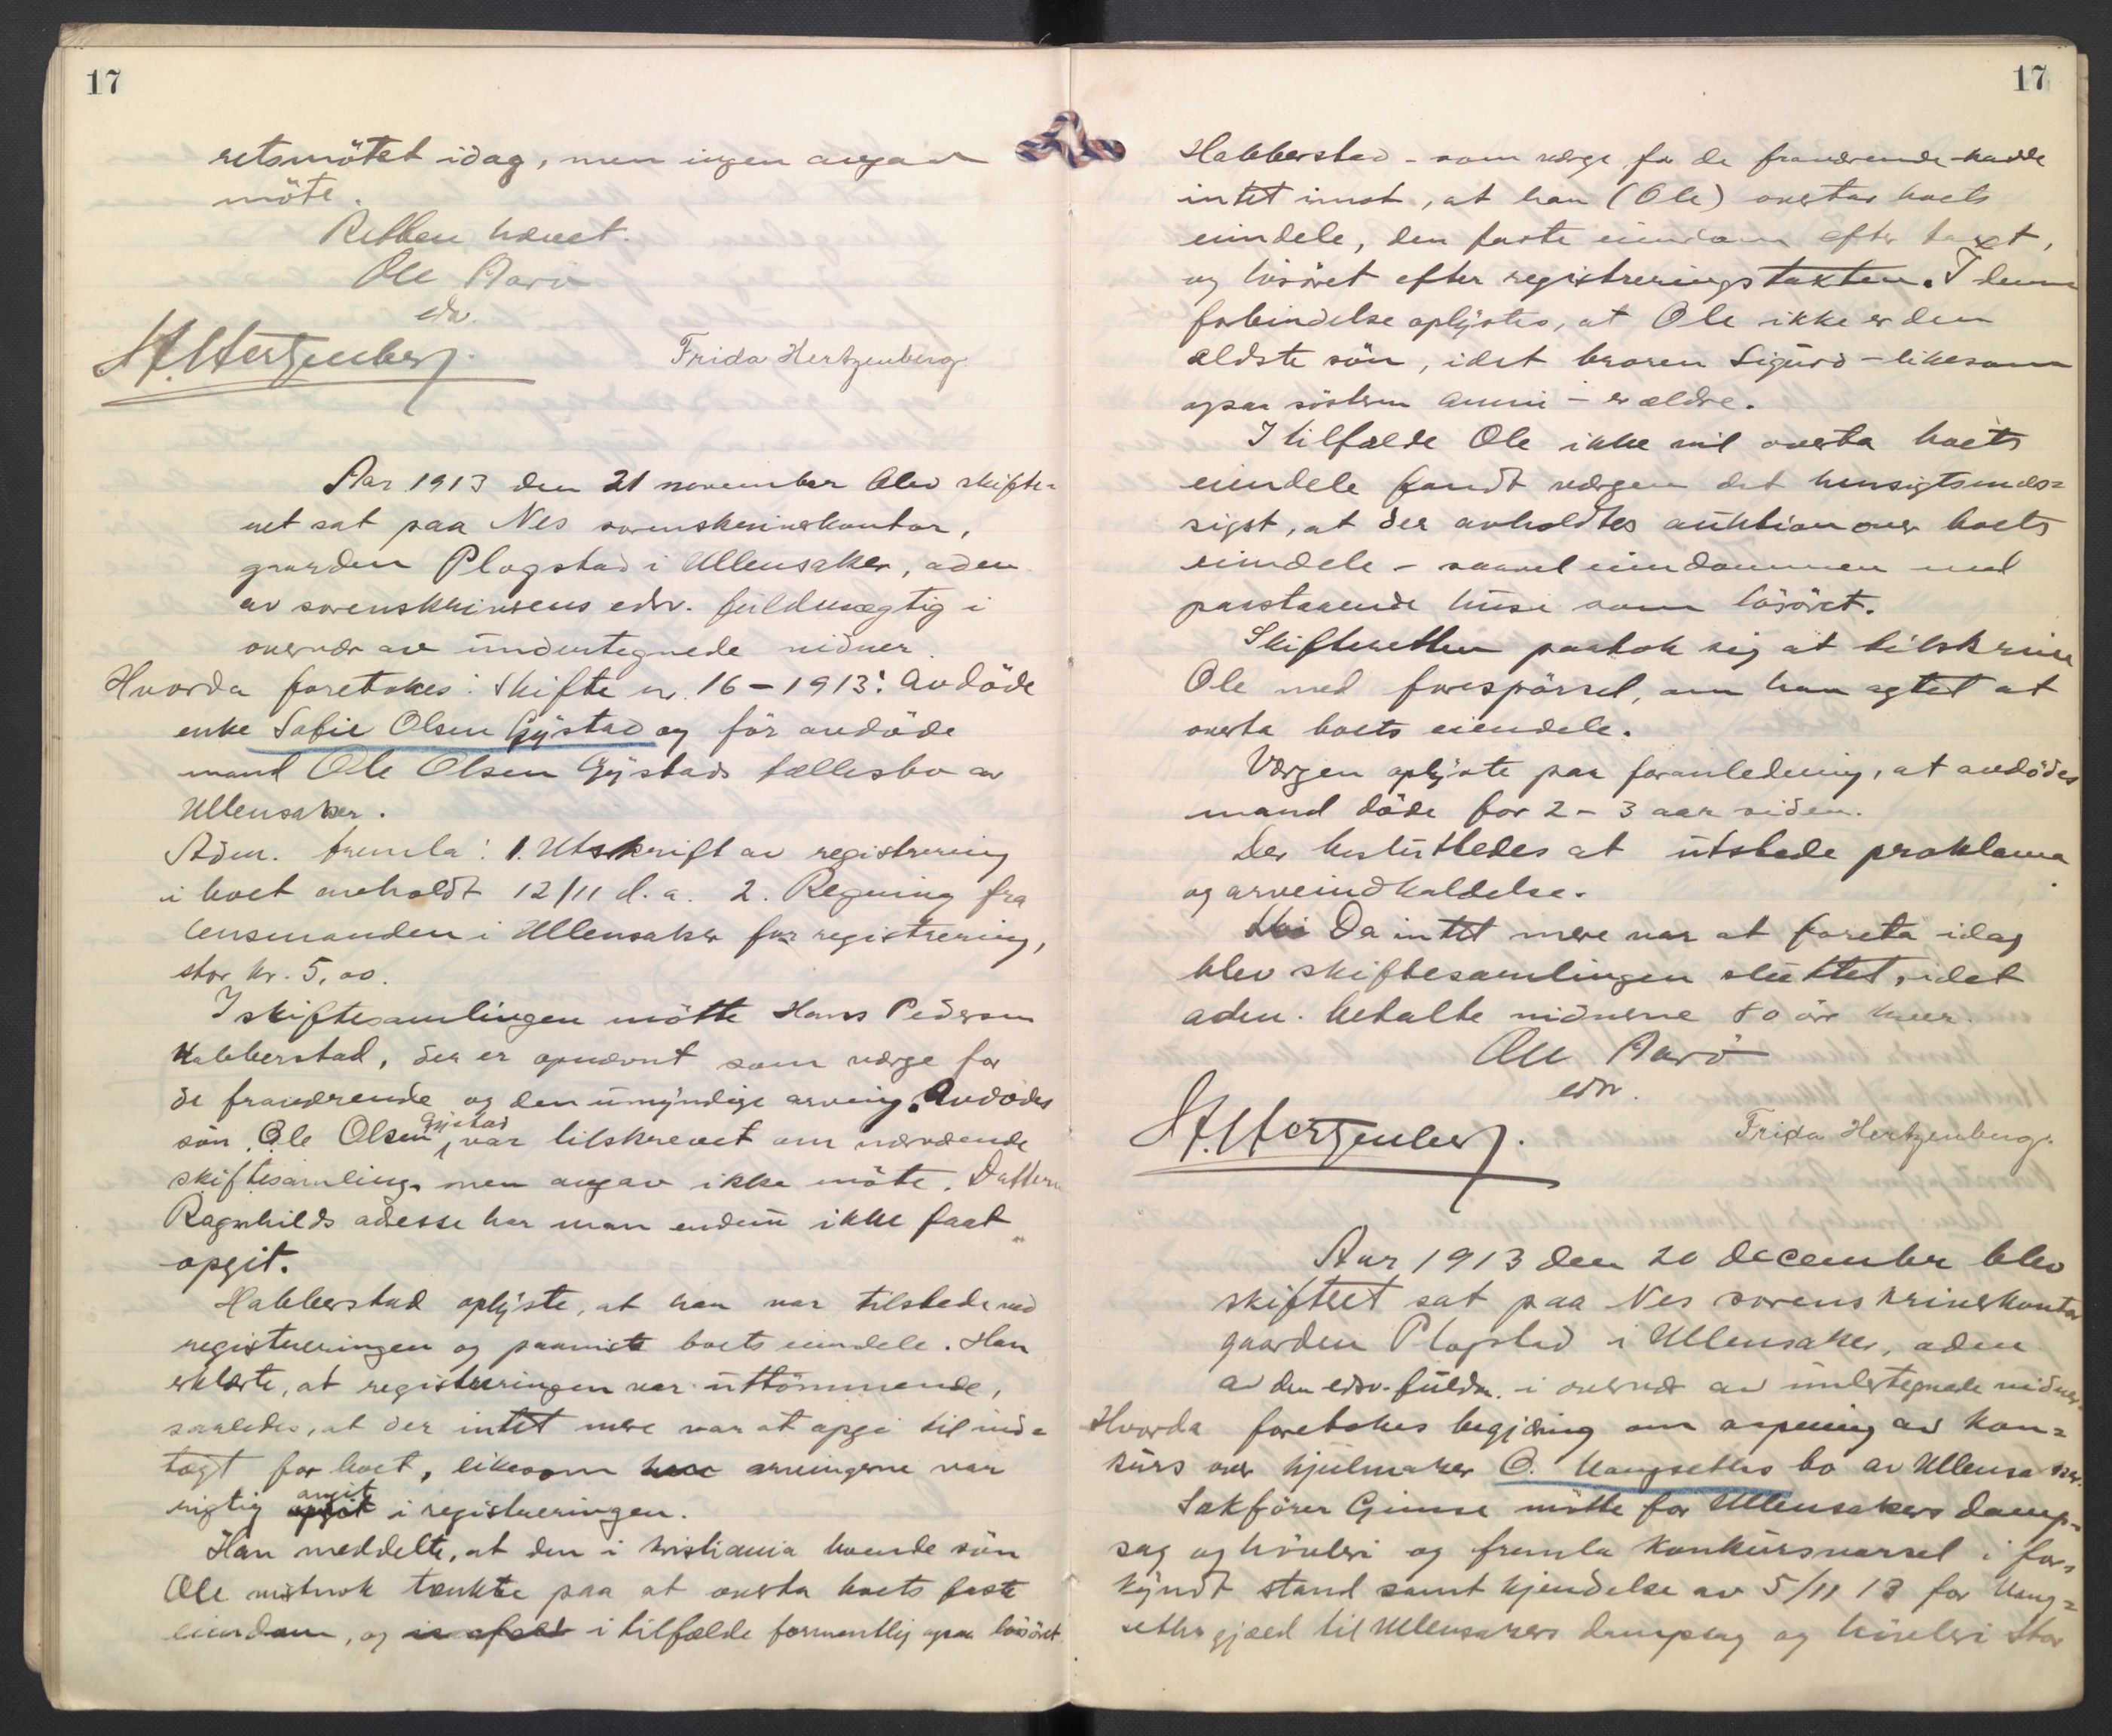 17
retsmötet idag, men ingen avgav
möte.
Retten hævet.
Ole Aarö
edv.
Frida Hertzenberg.
Aar 1913 den 21 november blev skifte-
ret sat paa Nes sorenskriverkontor,
gaarden Plogstad i Ullensaker, aden
av sorenskriverens edsv. fuldmægtig i
overvær av undertegnede vidner.
Hvorda foretokes: Skifte nr. 16-1913: Avdöde
enke Sofie Olsen Gystad og för avdöde
mand Ole Olsen Gystads fællesbo av
Ullensaker.
Adm. fremla: 1. Utskrift av registrering
i boet avholdt 12/11 d.a. 2. Regning fra
lensmanden i Ullensaker for registrering,
stor kr. 5,00.
I skiftesamlingen mötte Hans Pedersen
Habberstad, der er opnævnt som værge for
de fraværende og den umyndige arving. Avdödes
sön Ole Olsen Gystad, var tilskrevet om nærværende
skiftesamling, men avgav ikke möte. Datteren
Ragnhilds adesse har man endnu ikke faat
opgit.
Habberstad oplyste, at han var tilstede ved
registreringen og paaviste boets eiendele. Han
erklærte, at registreringen var uttömmende,
saaledes, at der intet mere var at opgi til ind-
tægt for boet, likesom arvingerne var
rigtig angit i registreringen.
Han meddelte, at den i Kristiania boende sön
Ole nistnok tænkte paa at overta boets faste
eiendom, og i tilfælde formentlig ogsaa lösöret.
17
Habberstad - som værge for de fraværende - hadde
intet imot, at han (Ole) overtar boets
eiendele, den faste eiendom efter taxt,
og lösöret efter registreringstakten. I denne
forbindelse oplystes, at Ole ikke er den
ældste sön, idet broren Sigurd - likesom
ogsaa sösteren Anni - er ældre.
I tilfælde Ole ikke vil overta boets
eiendele fandt værgen det hensigtsmæs-
sigst, at der avholdtes auktion over boets
eiendele - saavel eiendommen med
paastaaende huse som lösöret.
Skifteretten paatok sig at tilskrive
Ole med forespörsel, om han agtet at
overta boets eiendele.
Værgen oplyste paa foranledning, at avdödes
mand döde for 2-3 aar siden.
Der besluttedes at utstede proklama
og arveindkaldelse.
Da intet mere var at foreta idag
blev skiftesamlingen sluttet, idet
adm. betalte vidnerne 80 öre hver.
Ole Aarö
edv.
Frida Hertzenberg.
Aar 1913 den 20 december blev
skifteret sat paa Nes sorenskriverkontor
gaarden Plogstad i Ullensaker, aden
av den edsv. fuldm. i overvær av undertegnede vidner.
Hvorda foretokes begjæring om aapning av kon-
kurs over hjulmaker O. Haugseths bo av Ullensaker.
Sakförer Gimse mötte for Ullensakers damp-
sag og hövleri og fremla konkursvarsel i for-
kyndt stand samt kjendelse av 5/11 13 for Haug-
seths gjæld til Ullensakers dampsag og hövleri stor